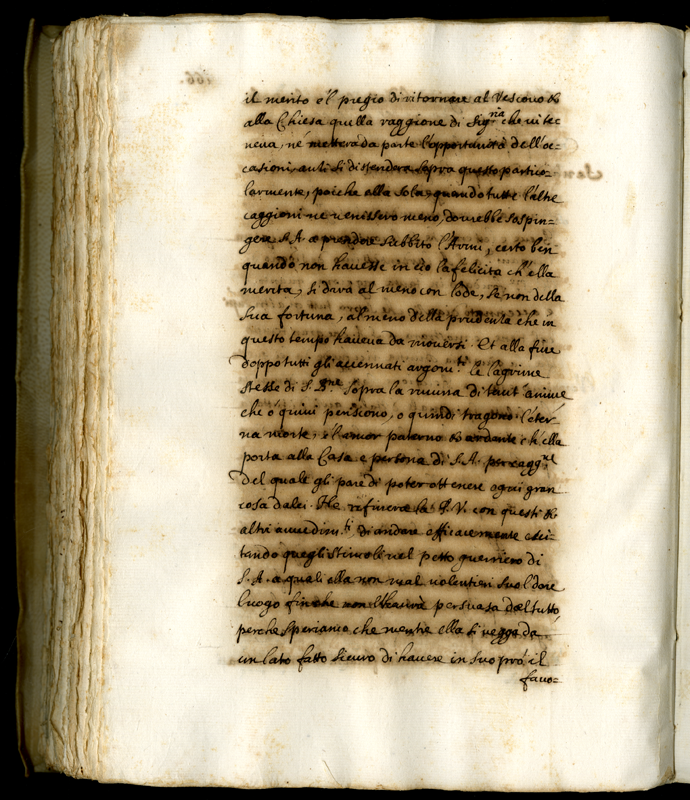 il merito e'l pregio di ritornare al Vescovo &
alla Chiesa quella raggione di Sig.ria che vi tec
neva, né metterà da parte l'opportunità dell'oc=
casioni, anzi si distenderà sopra questo partico=
larmente, poiche alla sola, quando tutte l'altre
caggioni ne venissero meno, dovrebbe sospin=
gere S.A. a prendere subbito l'Armi, certo ben
quando non havesse in ciò la felicità ch'ella
merita, si dirà al meno con lode, se non della
sua fortuna, al meno della prudenza che in
questo tempo haveva da moversi. Et alla fine
doppo tutti gli accennati argom.ti le lagrime
stesse di S. B.ne sopra la ruvina di tant'anime
che ò quivi pensiono, o quindi tragono l'éter=
na morte, e l'amor paterno & ardente ch'ella
porta alla Casa e persona di S.A. per cagg.ne
del quale gli pare di poter ottenere ogni gran
cosa da lei. Ha rifinerà la P.V. con questi &
altri avvedim.ti di andare efficacemente ecci=
tando quegli stimoli nel petto guerriero di
S.A. a quali ella non mal volentieri suol dare
luogo finche non l'haverà persuasa del tutto,
perche speriamo che mentre ella si vegga da
un lato fatto sicuro di havere in suo prò il
favo=